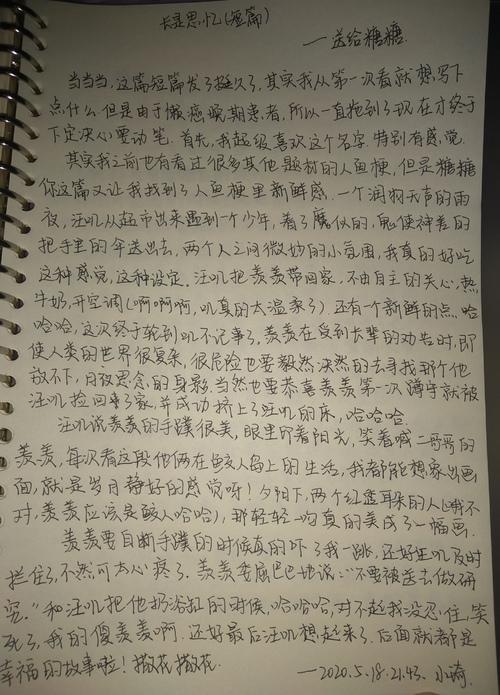 长是思忆(短篇)
——送给糖糖.
当当当,这篇短篇发了挺久了,其实我从第一次看就想写下
点什么.但是由于懒癌晚期患者,所以一直拖到了现在才终于
下定决心要动笔.首先,我超级喜欢这个名字.特别有感觉.
其实我之前也有看过很多其他题材的人鱼梗,但是糖糖
你这篇又让我找到了人鱼梗里新鲜感.一个润物无声的雨
夜,汪叽从超市出来遇到一个少年,着了魔似的,鬼使神差的
把手里的伞送出去,两个人之间微妙的小氛围,我真的好吃
这种感觉,这种设定.汪叽把羡羡带回家,不由自主的关心,热
牛奶,开空调(啊啊啊,叽真的太温柔了).还有一个新鲜的点,哈
哈哈,这次终于轮到叽不记事了,羡羡在受到长辈的劝告时,即
使人类的世界很复杂,很危险也要毅然决然的去寻找那个他
放不下,日夜思念的身影.当然也要恭喜羡羡第一次蹲守就被
汪叽捡回了家,并成功挤上了汪叽的床,哈哈哈.
汪叽说羡羡的手蹼很美,眼里盛着阳光,笑着喊二哥哥的
羡羡,每次看这段他俩在鲛人岛上的生活,我都能想象出画
面,就是岁月静好的感觉呀!夕阳下,两个红透耳朵的人(哦不
对,羡羡应该是鲛人哈哈),那轻轻一吻真的美成了一幅画.
羡羡要自断手蹼的时候真的吓了我一跳,还好汪叽及时
拦住了,不然可太心疼了.羡羡委屈巴巴地说:“不要被送去做研
究.”和汪叽把他扔浴缸的时候,哈哈哈,对不起我没忍住,笑
死了,我的傻羡羡啊.还好最后汪叽想起来了.后面就都是
幸福的故事啦!撒花撒花.
——2020.5.18.21:43.小琦